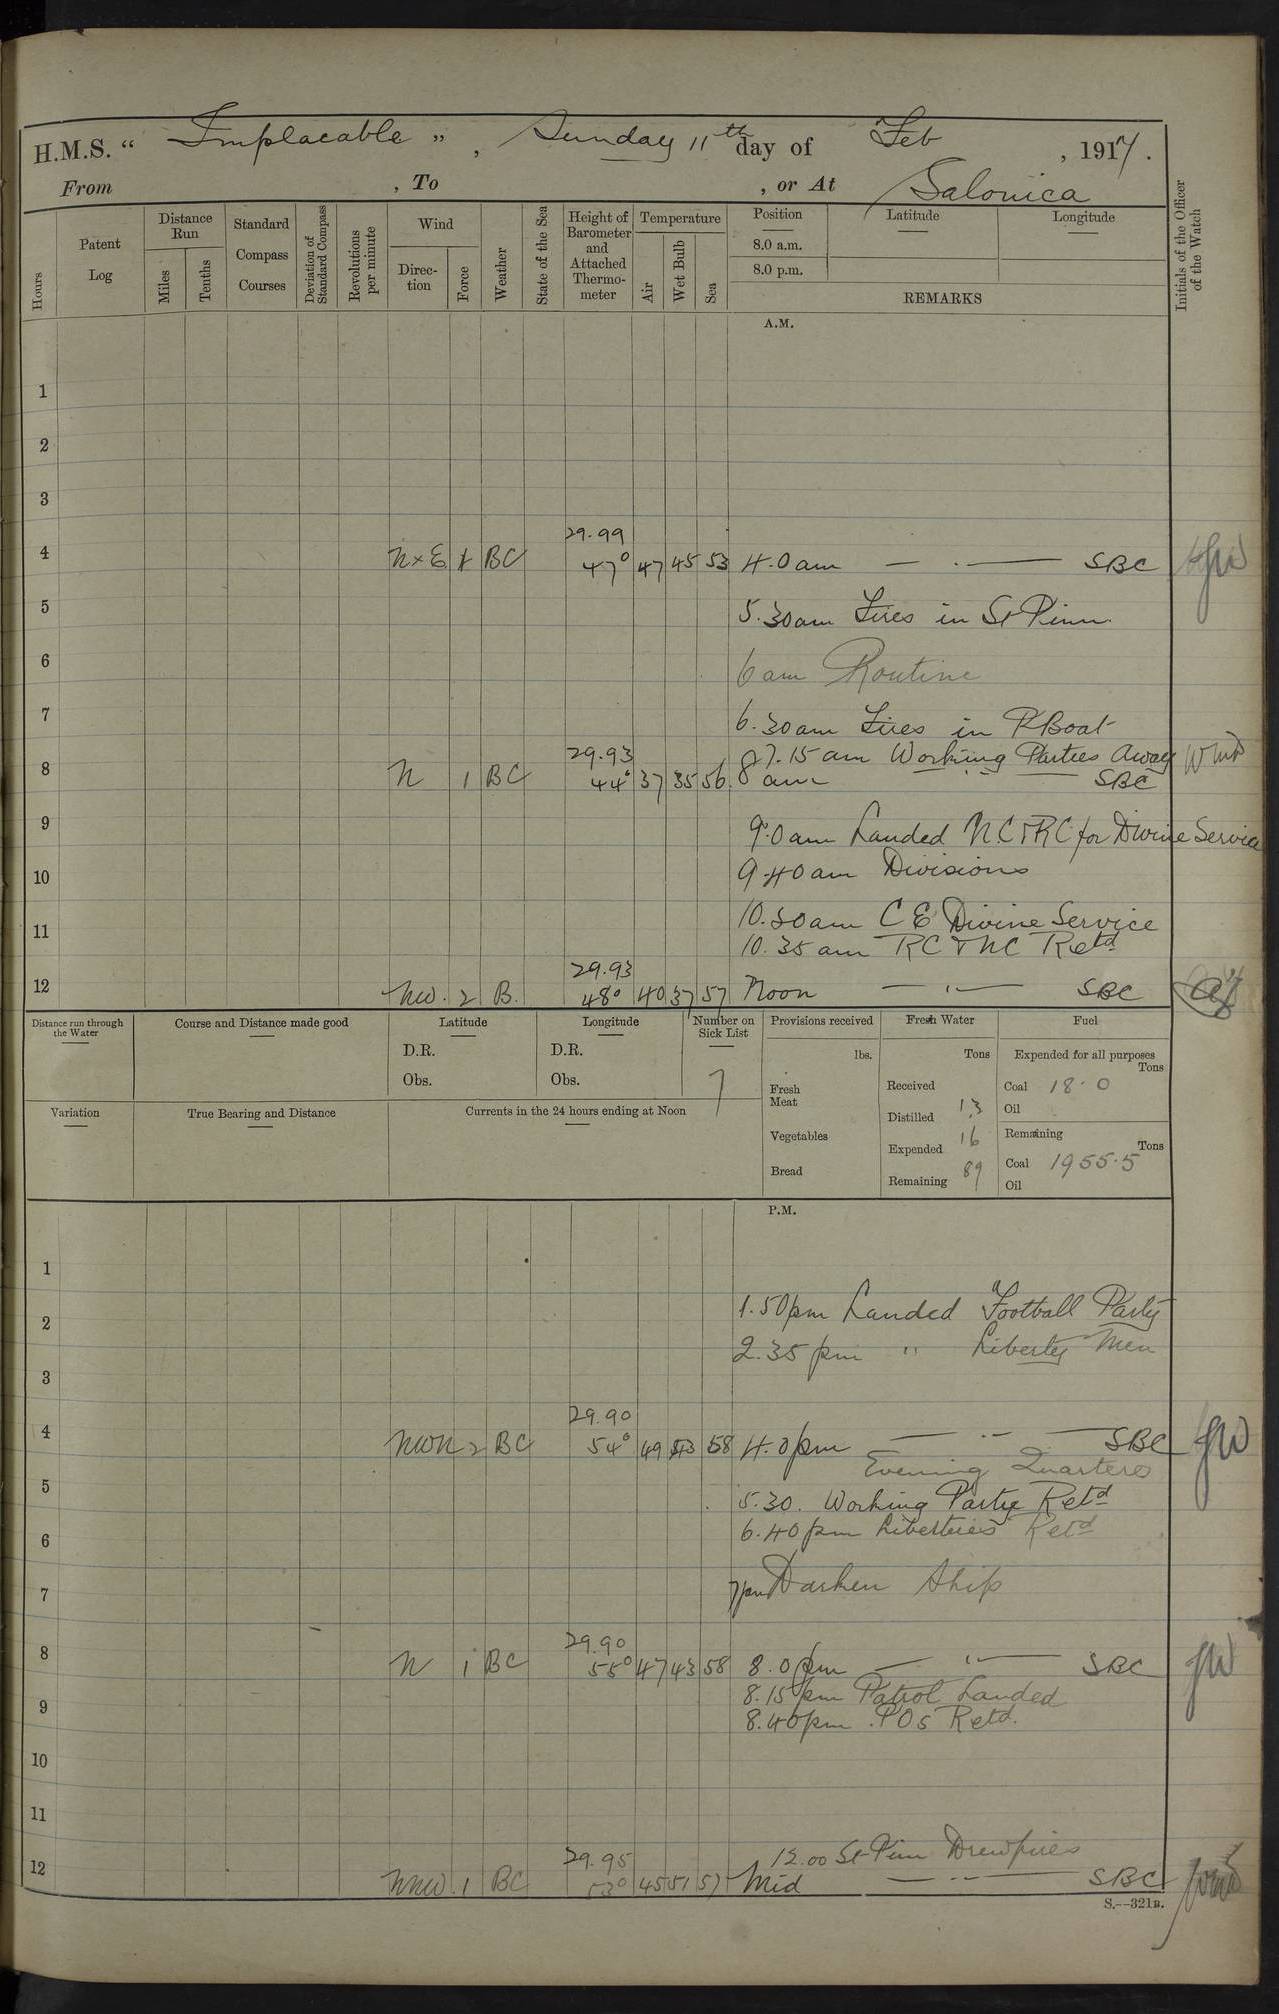 H.M.S. “ Implacable ” , Sunday 11th day of Feb , 1917.
From , To , or At Salonica
Hours
Patent Log
Distance Run
Miles
Tenths
Standard Compass Courses
Deviation of Standard Compass
Revolutions per minute
Wind
Direc-tion
Force
Weather
State of the Sea
Height of Barometer and Attached Thermo-meter
Temperature
Air
Wet Bulb
Sea
Position
Latitude
Longitude
8.0 a.m.
8.0 p.m.
REMARKS
Initials of the Officer of the Watch
A.M.
1
2
3
29.99
4 N×E 1 BC 47° 47 45 53 4.0am — . — SBC
5 5.30am Fires in St Pinn
6 6am Routine
7 6.30am Fires in P Boat
29.93 7.15am Working Parties Away
8 N 1 BC 44° 37 35 56 8 am " SBC
9 9.0am Landed N.C & RC for Divine Service
10 9.40am Divisions
10.30am C E Divine Service
11 10.35am RC & NC Retd
29.93
12 NW. 2 B. 48° 40 37 57 Noon — " — SBC
Distance run through the Water
Course and Distance made good
Latitude
D.R.
Obs.
Longitude
D.R.
Obs.
Number on Sick List
7
Provisions received
lbs.
Fresh Meat
Vegetables
Bread
Fresh Water
Tons
Received
Distilled 13
Expended 16
Remaining 89
Fuel
Expended for all purposes
Tons
Coal 18.0
Oil
Remaining
Tons
Coal 1955.5
Oil
Variation
True Bearing and Distance
Currents in the 24 hours ending at Noon
P.M.
1
2 1.50pm Landed Football Party
2.35 pm " Liberty Men
3
29.90
4 NWN 2 BC 54° 49 43 58 4.0pm — " — SBC
Evening Quarters
5 5.30. Working Party Retd
6 6.40pm Liberties Retd
7 7pm Darken Ship
29.90
8 N 1 BC 55° 47 43 58 8.0pm — " — SBC
8.15pm Patrol Landed
9 8.40pm . POs Retd.
10
11
29.95 12.00 St Pinn Drew fires
12 NNW. 1 BC 53° 45 51 57 Mid — " — SBC
S.—321B.